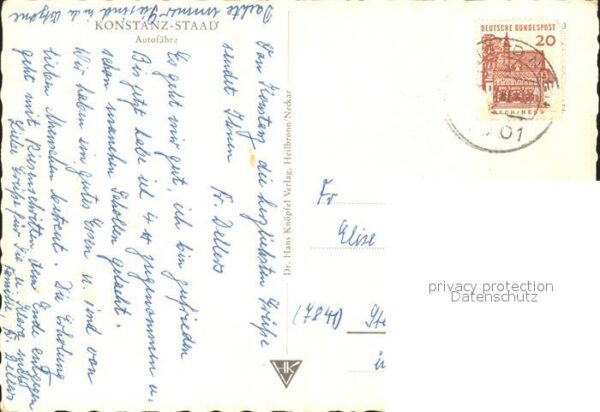 KONSTANZ-STAAD
Autofähre
Dachte immer Sie sind in der
Von Konstanz die herzlichsten Grüße
sendet Ihnen Fr. Dellers
Es geht mir gut, ich bin zufrieden
Bis jetzt habe ich 4 ℔ zugenommen u.
schon manchen Schoppen gelacht.
Wir haben ein gutes Essen u. sind von
lieben Menschen betreut. Die Erholung
geht mit Riesenschritten dem Ende entgegen
Liebe Grüße für Sie u. Klara nebst
Familie, Fr. Dellers
Dr. Hans Knöpfel Verlag, Heilbronn/Neckar
HK
DEUTSCHE BUNDESPOST
20
LORSCH/HESS
01
Fr
Elise
(7840)
privacy protection
Datenschutz